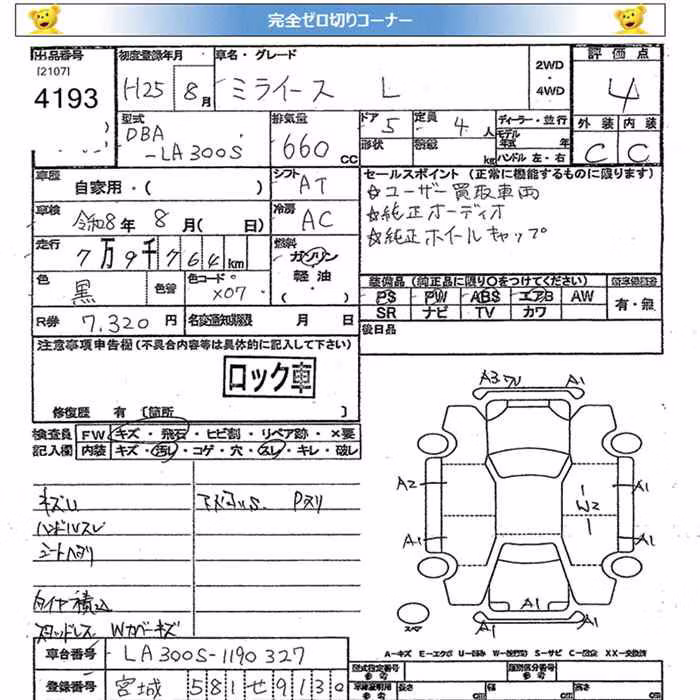 完全ゼロ切りコーナー
出品番号 初度登録年月 車名・グレード 2WD・4WD 評価点
[2107]
4193 H25 8月 ミライース L 4
型式 DBA-LA300S 排気量 660cc ドア 5 定員 4人 ディーラー・並行 外装 内装
形状 積載 kg モデル年式 年 ハンドル 左・右 C C
車歴 自家用・( ) シフト AT セールスポイント (正常に機能するものに限ります)
☆ユーザー買取車両
車検 令和8年8月( 日) 冷房 AC ☆純正オーディオ
☆純正ホイールキャップ
走行 7万9千764km 燃料 ガソリン 軽油 ( )
色 黒 色替 色コード X07 装備品 (純正品に限り○をつけてください)
PS PW ABS エアB AW 有・無
SR ナビ TV カワ
R券 7,320円 名変通知期限 月 日 後日品
注意事項申告欄 (不具合内容等は具体的に記入して下さい)
ロック車
修復歴 有 [箇所 ]
検査員 FW キズ・飛石・ヒビ割・リペア跡・×要
記入欄 内装 キズ・汚レ・コゲ・穴・スレ・キレ・破レ
A3 ワレ A1
A2 A1
W2
A1 A1
A1 A1
キズU
Pヌリ
ハンドルスレ
シートヘタリ
タイヤ積込
スタッドレス Wカバーキズ
A-キズ E-エクボ U-凹み W-波打 S-サビ C-腐食 XX-交換済
車台番号 LA300S-1190327
型式指定番号 参考 類別区分番号 参考
登録番号 宮城 581 せ 9130
長さ cm 幅 cm 高さ cm